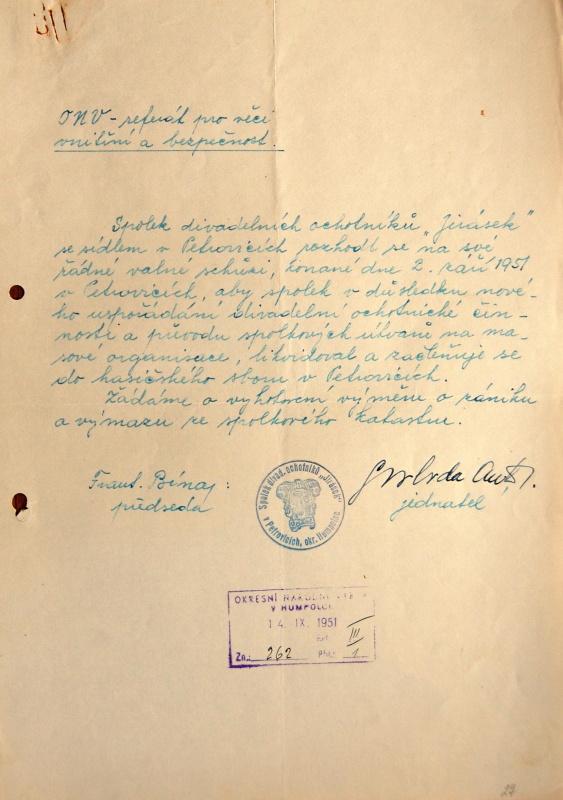 ONV - referát pro věci
vnitřní a bezpečnost.
Spolek divadelních ochotníků „Jirásek"
se sídlem v Petrovicích rozhodl se na své
řádné valné schůsi, konané dne 2. září 1951
v Petrovicích, aby spolek v důsledku nové-
ho uspořádání divadelní ochotnické čin-
nosti a převodu spolkových útvarů na ma-
sové organisace, likvidoval a začleňuje se
do hasičského sboru v Petrovicích.
Žádáme o vyhotovení výměru o zániku
a výmazu ze spolkového katastru.
Frant.
předseda
Spolek divad. ochotníků „Jirásek"
v Petrovicích, okr. Humpolec
jednatel
OKRESNÍ NÁRODNÍ VÝBOR
V HUMPOLCI
14. IX. 1951
III
Zn.: 262 Příl. 1